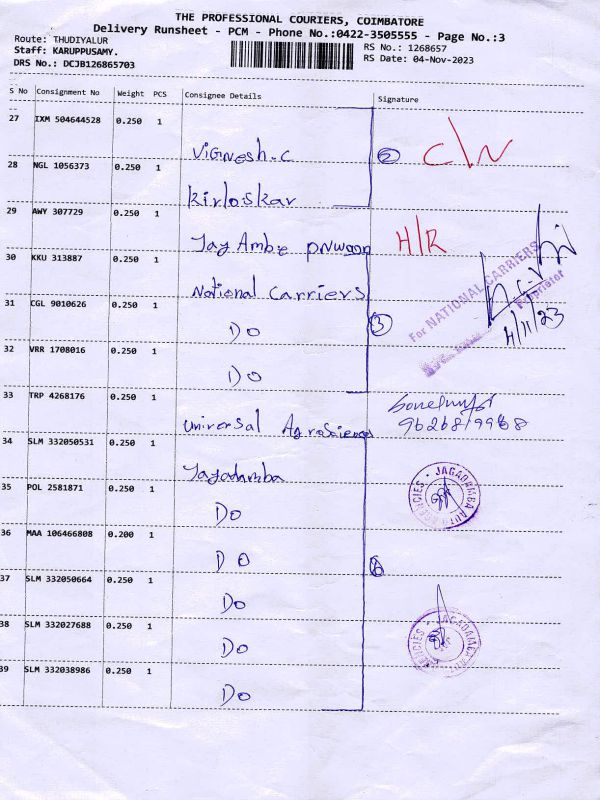 THE PROFESSIONAL COURIERS, COIMBATORE
Delivery Runsheet - PCM - Phone No.:0422-3505555 - Page No.:3
Route: THUDIYALUR
RS No.: 1268657
Staff: KARUPPUSAMY.
RS Date: 04-Nov-2023
DRS No.: DCJB126865703
S No Consignment No Weight PCS Consignee Details Signature
27 IXM 504644528 0.250 1
Vignesh.C
2 C/N
28 NGL 1056373 0.250 1
Kirloskar
29 AWY 307729 0.250 1
Jay Ambe
H/R
30 KKU 313887 0.250 1
National Carriers
For NATIONAL CARRIERS
Proprietor
4/11/23
31 CGL 9010626 0.250 1
DO
3
32 VRR 1708016 0.250 1
DO
33 TRP 4268176 0.250 1
Universal Agroscience
9626819968
34 SLM 332050531 0.250 1
Jagadamba
JAGADAMBA AUTO AGENCIES
35 POL 2581871 0.250 1
DO
36 MAA 106466808 0.200 1
DO
6
37 SLM 332050664 0.250 1
DO
38 SLM 332027688 0.250 1
DO
JAGADAMBA AUTO AGENCIES
39 SLM 332038986 0.250 1
DO